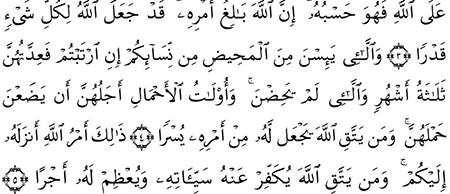 عَلَى ٱللَّهِ فَهُوَ حَسْبُهُۥٓ ۚ إِنَّ ٱللَّهَ بَـٰلِغُ أَمْرِهِۦ ۚ قَدْ جَعَلَ ٱللَّهُ لِكُلِّ شَىْءٍ
قَدْرًا ﴿٣﴾ وَٱلَّـٰٓـِٔى يَئِسْنَ مِنَ ٱلْمَحِيضِ مِن نِّسَآئِكُمْ إِنِ ٱرْتَبْتُمْ فَعِدَّتُهُنَّ
ثَلَـٰثَةُ أَشْهُرٍ وَٱلَّـٰٓـِٔى لَمْ يَحِضْنَ ۚ وَأُو۟لَـٰتُ ٱلْأَحْمَالِ أَجَلُهُنَّ أَن يَضَعْنَ
حَمْلَهُنَّ ۚ وَمَن يَتَّقِ ٱللَّهَ يَجْعَل لَّهُۥ مِنْ أَمْرِهِۦ يُسْرًا ﴿٤﴾ ذَٰلِكَ أَمْرُ ٱللَّهِ أَنزَلَهُۥٓ
إِلَيْكُمْ ۚ وَمَن يَتَّقِ ٱللَّهَ يُكَفِّرْ عَنْهُ سَيِّـَٔاتِهِۦ وَيُعْظِمْ لَهُۥٓ أَجْرًا ﴿٥﴾